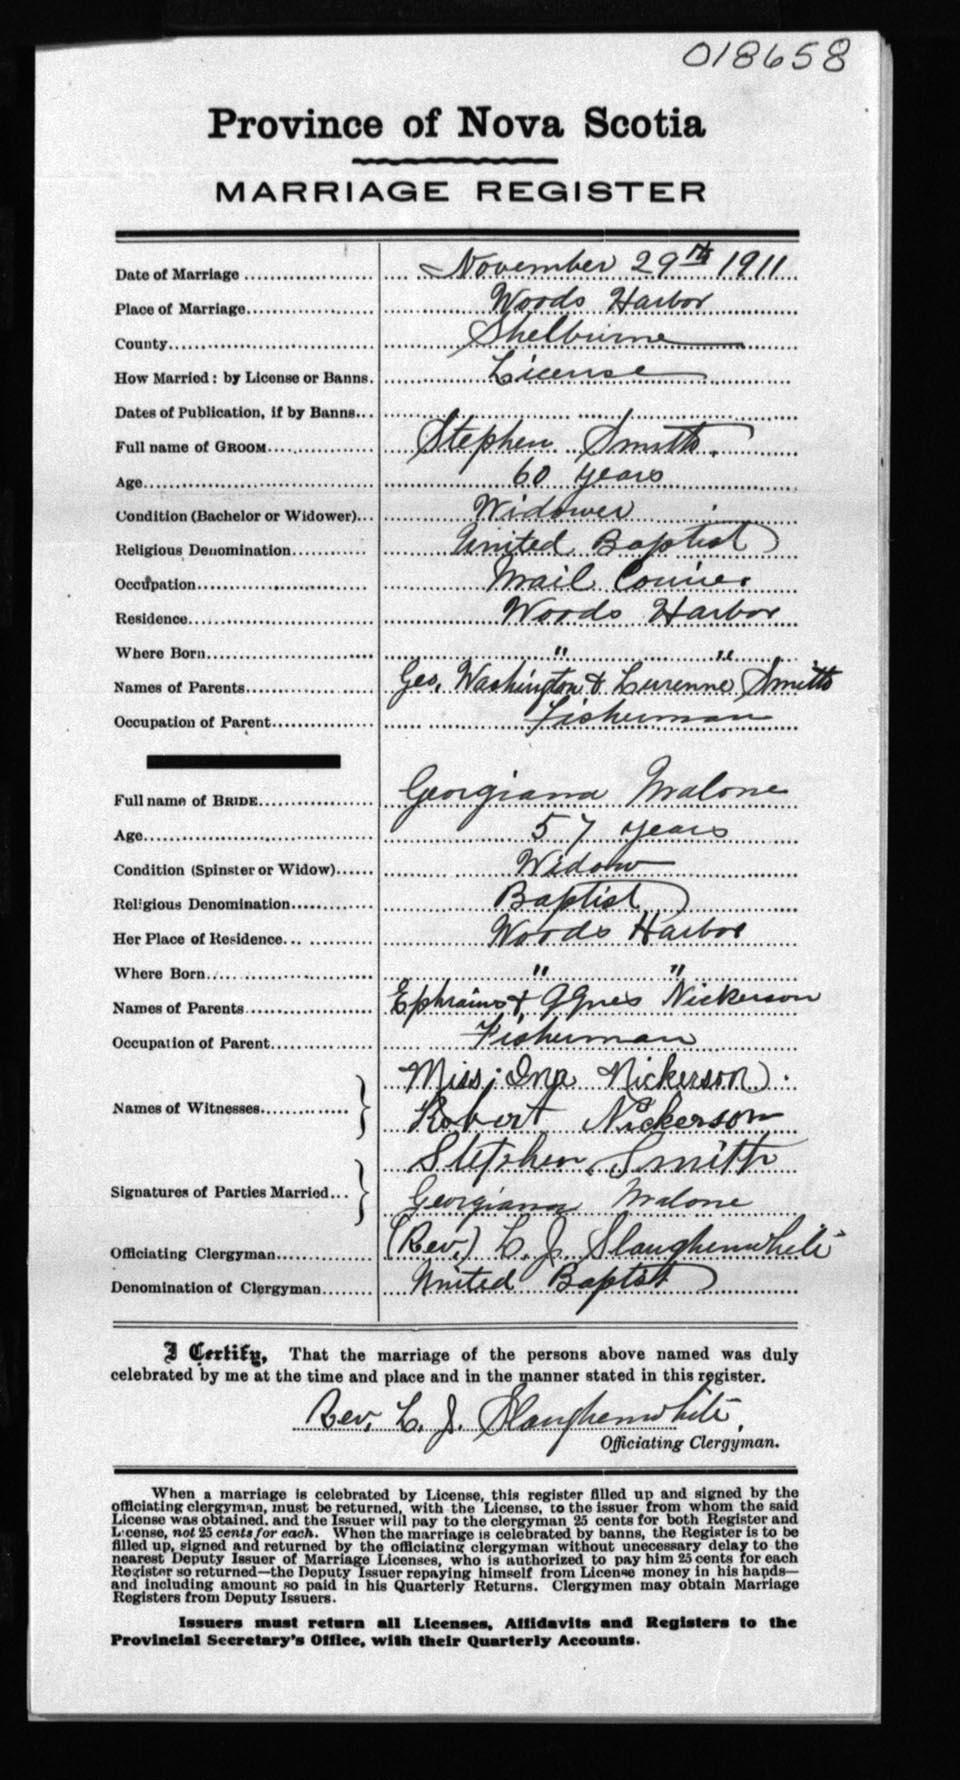 018658
Province of Nova Scotia
MARRIAGE REGISTER
Date of Marriage November 29th 1911
Place of Marriage Woods Harbor
County Shelburne
How Married: by License or Banns. License
Dates of Publication, if by Banns
Full name of GROOM Stephen Smith.
Age 60 years
Condition (Bachelor or Widower) Widower
Religious Denomination United Baptist
Occupation Mail Courier
Residence Woods Harbor
Where Born " "
Names of Parents Geo. Washington & Lurenne Smith
Occupation of Parent Fisherman
Full name of BRIDE Georgiana Malone
Age 57 years
Condition (Spinster or Widow) Widow
Religious Denomination Baptist
Her Place of Residence Woods Harbor
Where Born " "
Names of Parents Ephraim & Agnes Nickerson
Occupation of Parent Fisherman
Names of Witnesses Miss Ina Nickerson.
Robert Nickerson
Signatures of Parties Married Stephen Smith
Georgiana Malone
Officiating Clergyman (Rev.) L. J. Slaughenwhite
Denomination of Clergyman United Baptist
I Certify, That the marriage of the persons above named was duly
celebrated by me at the time and place and in the manner stated in this register.
Rev. L. J. Slaughenwhite,
Officiating Clergyman.
When a marriage is celebrated by License, this register filled up and signed by the
officiating clergyman, must be returned, with the License, to the issuer from whom the said
License was obtained, and the Issuer will pay to the clergyman 25 cents for both Register and
License, not 25 cents for each. When the marriage is celebrated by banns, the Register is to be
filled up, signed and returned by the officiating clergyman without unecessary delay to the
nearest Deputy Issuer of Marriage Licenses, who is authorized to pay him 25 cents for each
Register so returned—the Deputy Issuer repaying himself from License money in his hands—
and including amount so paid in his Quarterly Returns. Clergymen may obtain Marriage
Registers from Deputy Issuers.
Issuers must return all Licenses, Affidavits and Registers to the
Provincial Secretary's Office, with their Quarterly Accounts.